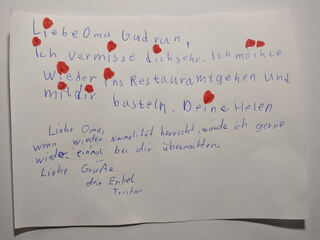 Liebe Oma Gudrun,
Ich vermisse dich sehr. Ich möchte
wieder ins Restauramtgehen und
mit dir basteln. Deine Helen
Liebe Oma,
wenn wieder Normalität herrscht, würde ich gerne
wieder einmal bei dir übernachten.
Liebe Grüße
dein Enkel
Tristan